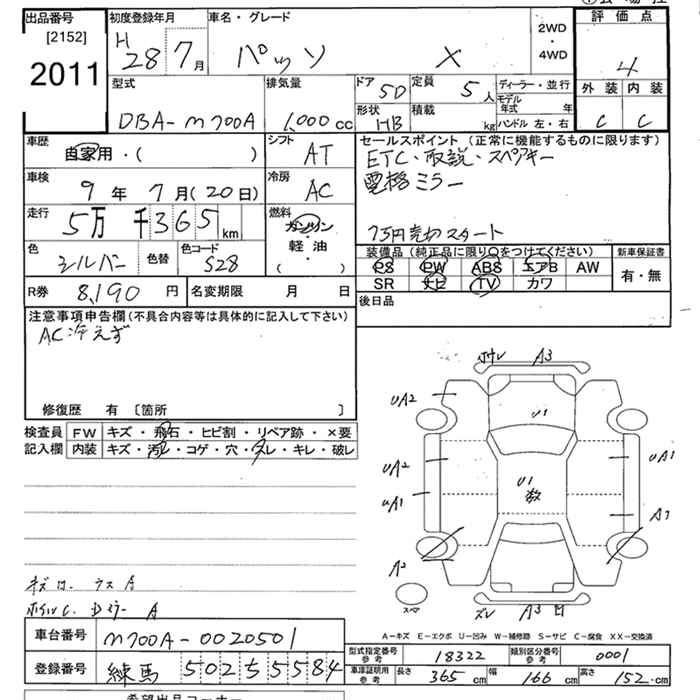 出品番号
[2152]
2011
初度登録年月
H 28年 7月
車名・グレード
パッソ X
2WD
・
4WD
評 価 点
4
外 装 内 装
C C
型式
DBA-M700A
排気量
1,000 cc
ドア 5D
定員 5人
形状 HB
積載 kg
ディーラー・並行
モデル年式 年
ハンドル 左・右
車歴
自家用・( )
シフト
AT
車検
9年 7月(20日)
冷房
AC
走行
5万 千365 km
燃料
ガソリン
・
軽 ・ 油
( )
色
シルバー
色替
色コード
S28
R券 8,190 円
名変期限 月 日
セールスポイント (正常に機能するものに限ります)
ETC・取説・スペアキー
電格ミラー
7万円売切スタート
装備品 (純正品に限り○をつけてください)
PS PW ABS エアB AW
SR ナビ TV カワ
新車保証書
有・無
後日品
注意事項申告欄(不具合内容等は具体的に記入して下さい)
AC冷えず
修復歴 有 〔箇所 〕
検査員
記入欄
FW キズ・飛石・ヒビ割・リペア跡・×要
内装 キズ・汚レ・コゲ・穴・スレ・キレ・破レ
A3
UA2
U1
UA2
U1
UA1
UA1
A1
A2
スペア
A3
A-キズ E-エクボ U-凹み W-補修跡 S-サビ C-腐食 XX-交換済
車台番号 M700A-0020501
登録番号 練馬 502 5 5584
型式指定番号
参考
18322
類別区分番号
参考
0001
車庫証明用
参考
長さ 365 cm 幅 166 cm 高さ 152 cm
希望出品コーナー